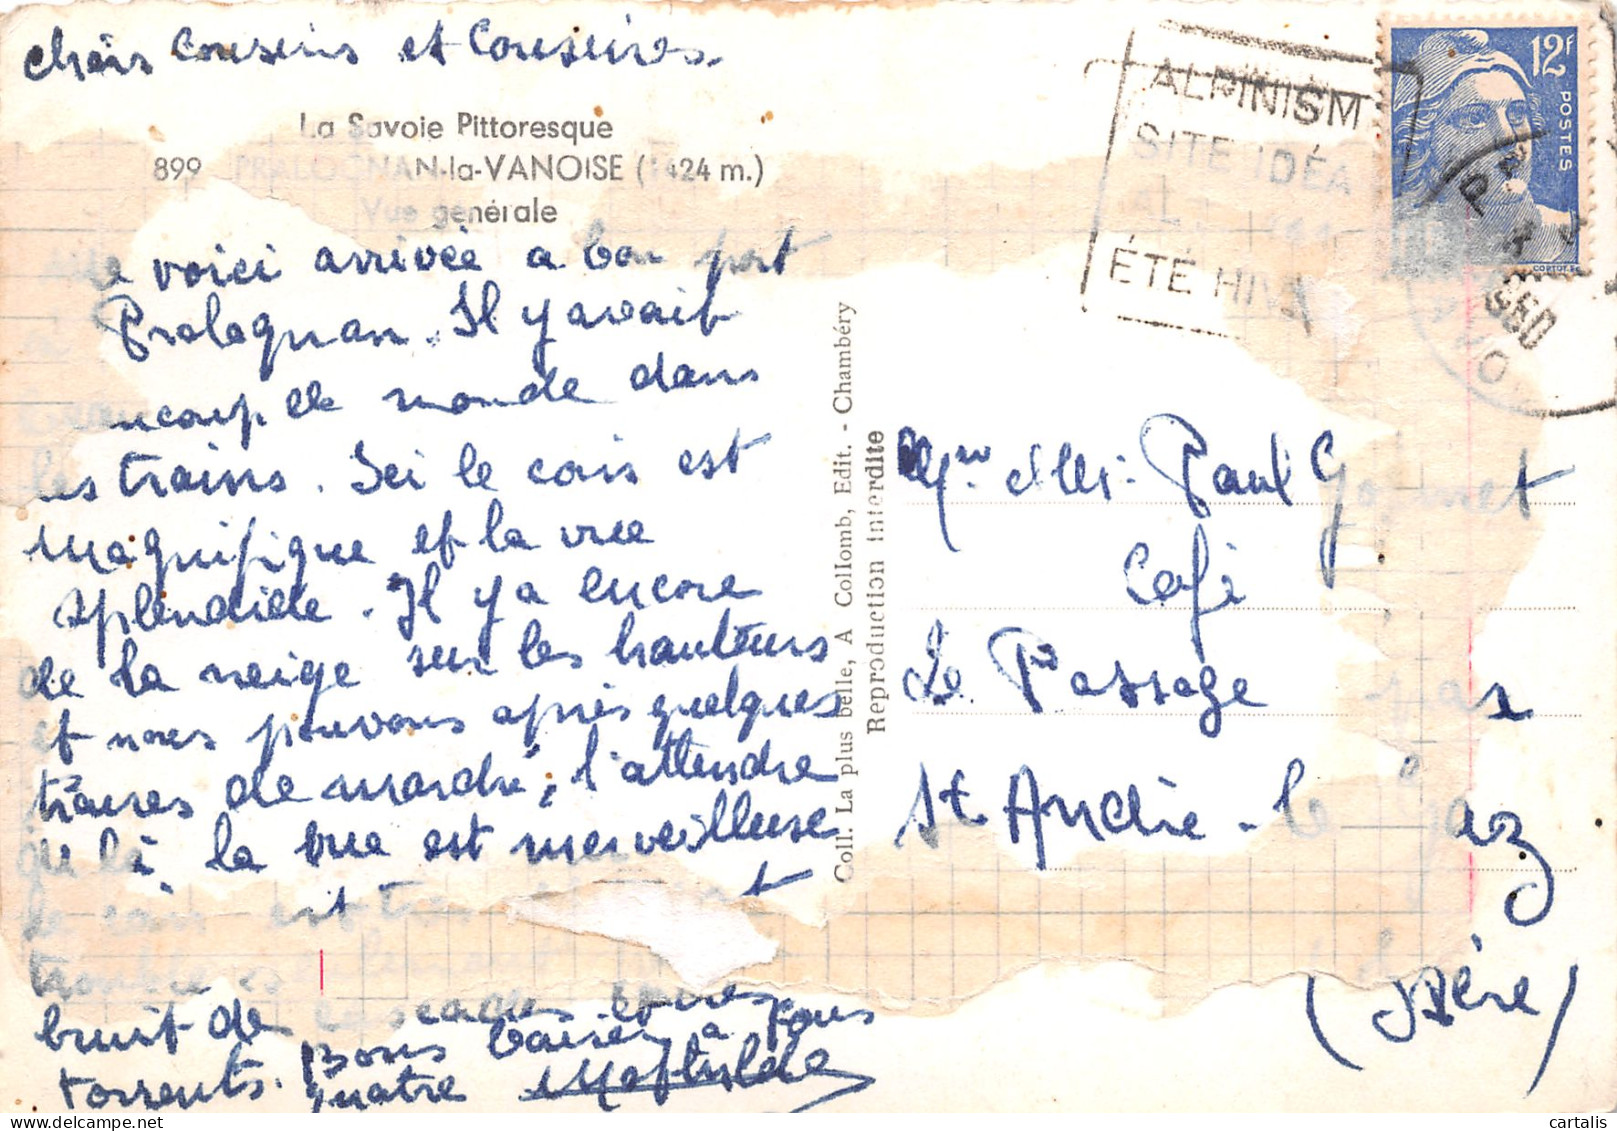 chers Cousins et Cousines.
La Savoie Pittoresque
899 PRALOGNAN-la-VANOISE (1424 m.)
Vue générale
voici arrivée a bon port
Pralognan. Il y avait
beaucoup de monde dans
les trains. Ici le coin est
magnifique et la vue
splendide. Il y a encore
de la neige sur les hauteurs
et nous pouvons après quelques
de marche, l'attendre
de là la vue est merveilleuse
le coin est
trouble
bruit de cascades
torrents. Bons baisers a tous
quatre Mathilde
Coll. La plus belle, A Collomb, Edit. - Chambéry
Reproduction Interdite
ALPINISM
SITE IDÉA
ÉTÉ HIV
12F
POSTES
Mr et Me. Paul
Café
Le Passage par
St André-le Gaz
(Isère)
cartalis
delcampe.net